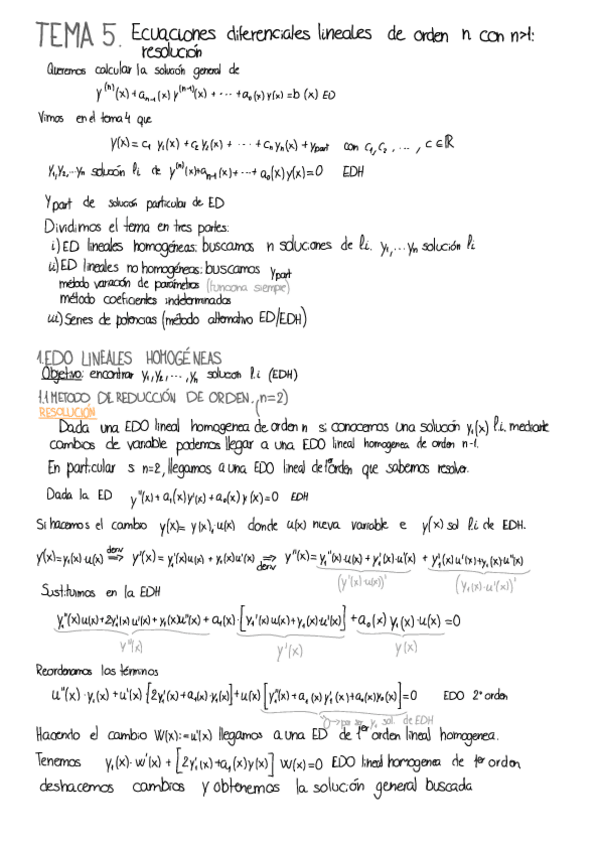 TEMA 5. Ecuaciones diferenciales lineales de orden n con n>1:
resolución
Queremos calcular la solución general de
y⁽ⁿ⁾(x)+aₙ₋₁(x) y⁽ⁿ⁻¹⁾(x) + ... +a₀(x) y(x) = b(x) ED
Vimos en el tema 4 que
y(x) = c₁ y₁(x) + c₂ y₂(x) + ... + cₙ yₙ(x) + y_part con c₁, c₂, ..., c ∈ ℝ
y₁, y₂, ... yₙ solución li de y⁽ⁿ⁾(x)+aₙ₋₁(x)+ ...+ a₀(x)y(x)=0 EDH
y_part de solución particular de ED
Dividimos el tema en tres partes:
i) ED lineales homogéneas: buscamos n soluciones de li. y₁, ... yₙ solución li
ii) ED lineales no homogéneas: buscamos y_part
método variación de parámetros (funciona siempre)
método coeficientes indeterminados
iii) Series de potencias (método alternativo ED/EDH)
1. EDO LINEALES HOMOGÉNEAS
Objetivo: encontrar y₁, y₂, ..., yₙ solución l.i (EDH)
1.1 METODO DE REDUCCIÓN DE ORDEN. (n=2)
RESOLUCIÓN
Dada una EDO lineal homogenea de orden n si conocemos una solución y₁(x) l.i, mediante
cambios de variable podemos llegar a una EDO lineal homogenea de orden n-1.
En particular s n=2, llegamos a una EDO lineal de 1er orden que sabemos resolver.
Dada la ED y''(x) + a₁(x)y'(x) + a₀(x) y(x)=0 EDH
Si hacemos el cambio y(x)= y₁(x).u(x) donde u(x) nueva variable e y(x) sol li de EDH.
y(x)=y₁(x)·u(x) ⇒ deriv y'(x) = y₁'(x)u(x) + y₁(x)u'(x) ⇒ deriv y''(x)=y₁''(x)·u(x) + y₁'(x)·u'(x) + y₁'(x)u'(x)+y₁(x)·u''(x)
(y'(x)·u(x))' (y₁(x)·u'(x))'
Sustituimos en la EDH
y₁''(x)u(x)+2y₁'(x)u'(x)+y₁(x)u''(x) + a₁(x)·[y₁'(x)u(x)+y₁(x)·u'(x)] +a₀(x) y₁(x)·u(x) =0
y''(x) y'(x) y(x)
Reordenamos los términos
u''(x)·y₁(x) + u'(x)[2y₁'(x)+a₁(x)·y₁(x)]+u(x)[y₁''(x)+a₁(x)y₁'(x)+a₀(x)y₁(x)]=0 EDO 2º orden
0 → por ser y₁ sol. de EDH
Haciendo el cambio W(x):=u'(x) llegamos a una ED de 1er orden lineal homogenea.
Tenemos y₁(x)·w'(x) + [2y₁'(x)+a₁(x)y(x)] w(x)=0 EDO lineal homogenea de 1er orden
deshacemos cambios y obtenemos la solución general buscada